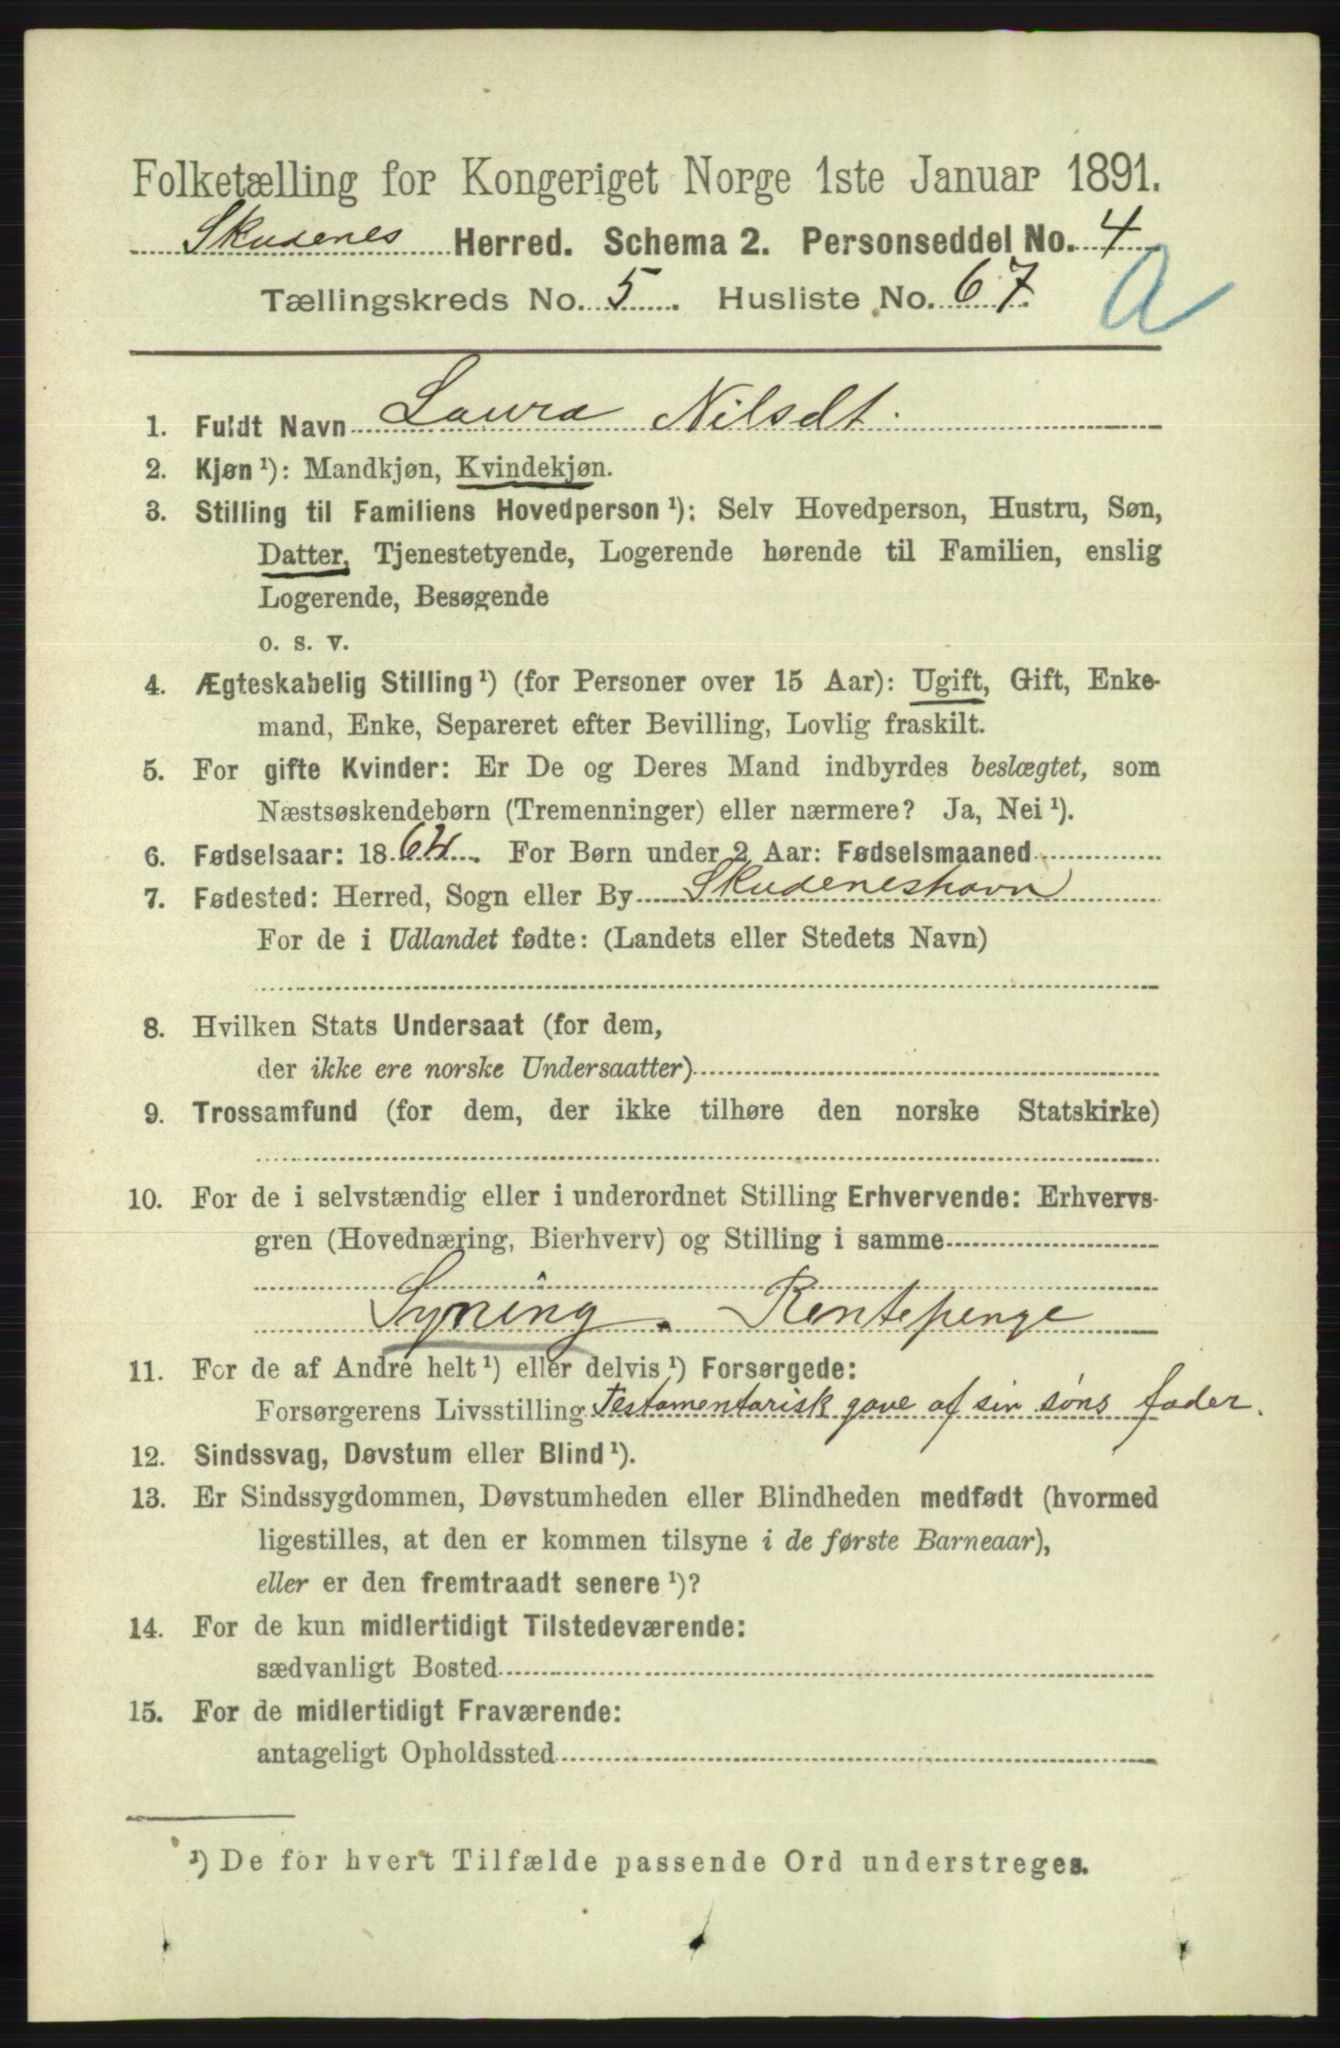 Folketælling for Kongeriget Norge 1ste Januar 1891.
Skudenes Herred. Schema 2. Personseddel No. 4
Tællingskreds No. 5. Husliste No. 67. a
1. Fuldt Navn Laura Nilsdt.
2. Kjøn ¹): Mandkjøn, Kvindekjøn.
3. Stilling til Familiens Hovedperson ¹): Selv Hovedperson, Hustru, Søn,
Datter, Tjenestetyende, Logerende hørende til Familien, enslig
Logerende, Besøgende
o. s. v.
4. Ægteskabelig Stilling ¹) (for Personer over 15 Aar): Ugift, Gift, Enke-
mand, Enke, Separeret efter Bevilling, Lovlig fraskilt.
5. For gifte Kvinder: Er De og Deres Mand indbyrdes beslægtet, som
Næstsøskendebørn (Tremenninger) eller nærmere? Ja, Nei ¹).
6. Fødselsaar: 18 64. For Børn under 2 Aar: Fødselsmaaned
7. Fødested: Herred, Sogn eller By Skudeneshavn
For de i Udlandet fødte: (Landets eller Stedets Navn)
8. Hvilken Stats Undersaat (for dem,
der ikke ere norske Undersaatter)
9. Trossamfund (for dem, der ikke tilhøre den norske Statskirke)
10. For de i selvstændig eller i underordnet Stilling Erhvervende: Erhvervs-
gren (Hovednæring, Bierhverv) og Stilling i samme
Syning. Rentepenge
11. For de af Andre helt ¹) eller delvis ¹) Forsørgede:
Forsørgerens Livsstilling Testamentarisk gave af sin søns fader.
12. Sindssvag, Døvstum eller Blind ¹).
13. Er Sindssygdommen, Døvstumheden eller Blindheden medfødt (hvormed
ligestilles, at den er kommen tilsyne i de første Barneaar),
eller er den fremtraadt senere ¹)?
14. For de kun midlertidigt Tilstedeværende:
sædvanligt Bosted
15. For de midlertidigt Fraværende:
antageligt Opholdssted
¹) De for hvert Tilfælde passende Ord understreges.